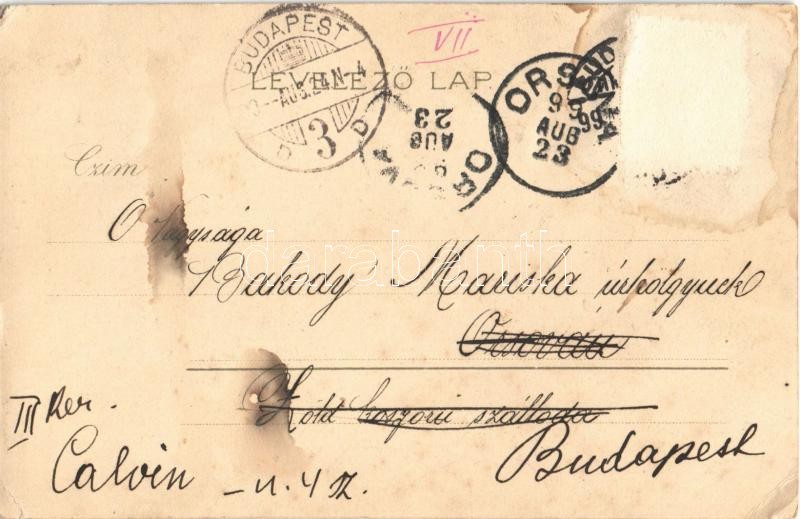 VII
BUDAPEST
3
AUG. 24. N-4
3
D D
LEVELEZŐ LAP
ORSOVA
99
AUG
23
AUG
23
Czim
Ő Nagysága
Bakody Mariska úrhölgynek
Orsován
Zöld koszorú szálloda
III Ker.
Calvin - u. 4 sz.
Budapest
darabanth